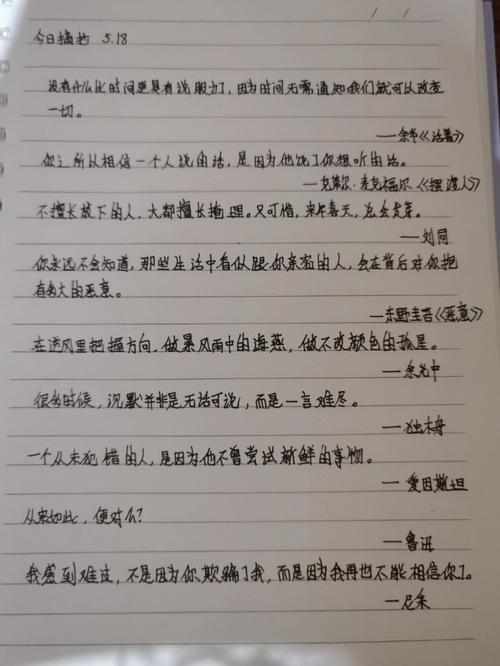 今日摘抄 5.18
没有什么比时间更具有说服力了，因为时间无需通知我们就可以改变
一切。
——余华《活着》
你之所以相信一个人说的话，是因为他说了你想听的话。
——克莱尔·麦克福尔《摆渡人》
不擅长放下的人，大都擅长掩埋。又可惜，来年春天，总会发芽。
——刘同
你永远不会知道，那些生活中看似跟你亲密的人，会在背后对你抱
有多大的恶意。
——东野圭吾《恶意》
在逆风里把握方向，做暴风雨中的海燕，做不改颜色的孤星。
——余光中
很多时候，沉默并非是无话可说，而是一言难尽。
——独木舟
一个从未犯错的人，是因为他不曾尝试新鲜的事物。
——爱因斯坦
从来如此，便对么？
——鲁迅
我感到难过，不是因为你欺骗了我，而是因为我再也不能相信你了。
——尼采